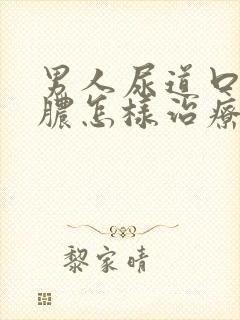 男人尿道口
膿怎樣治療
黎家晴